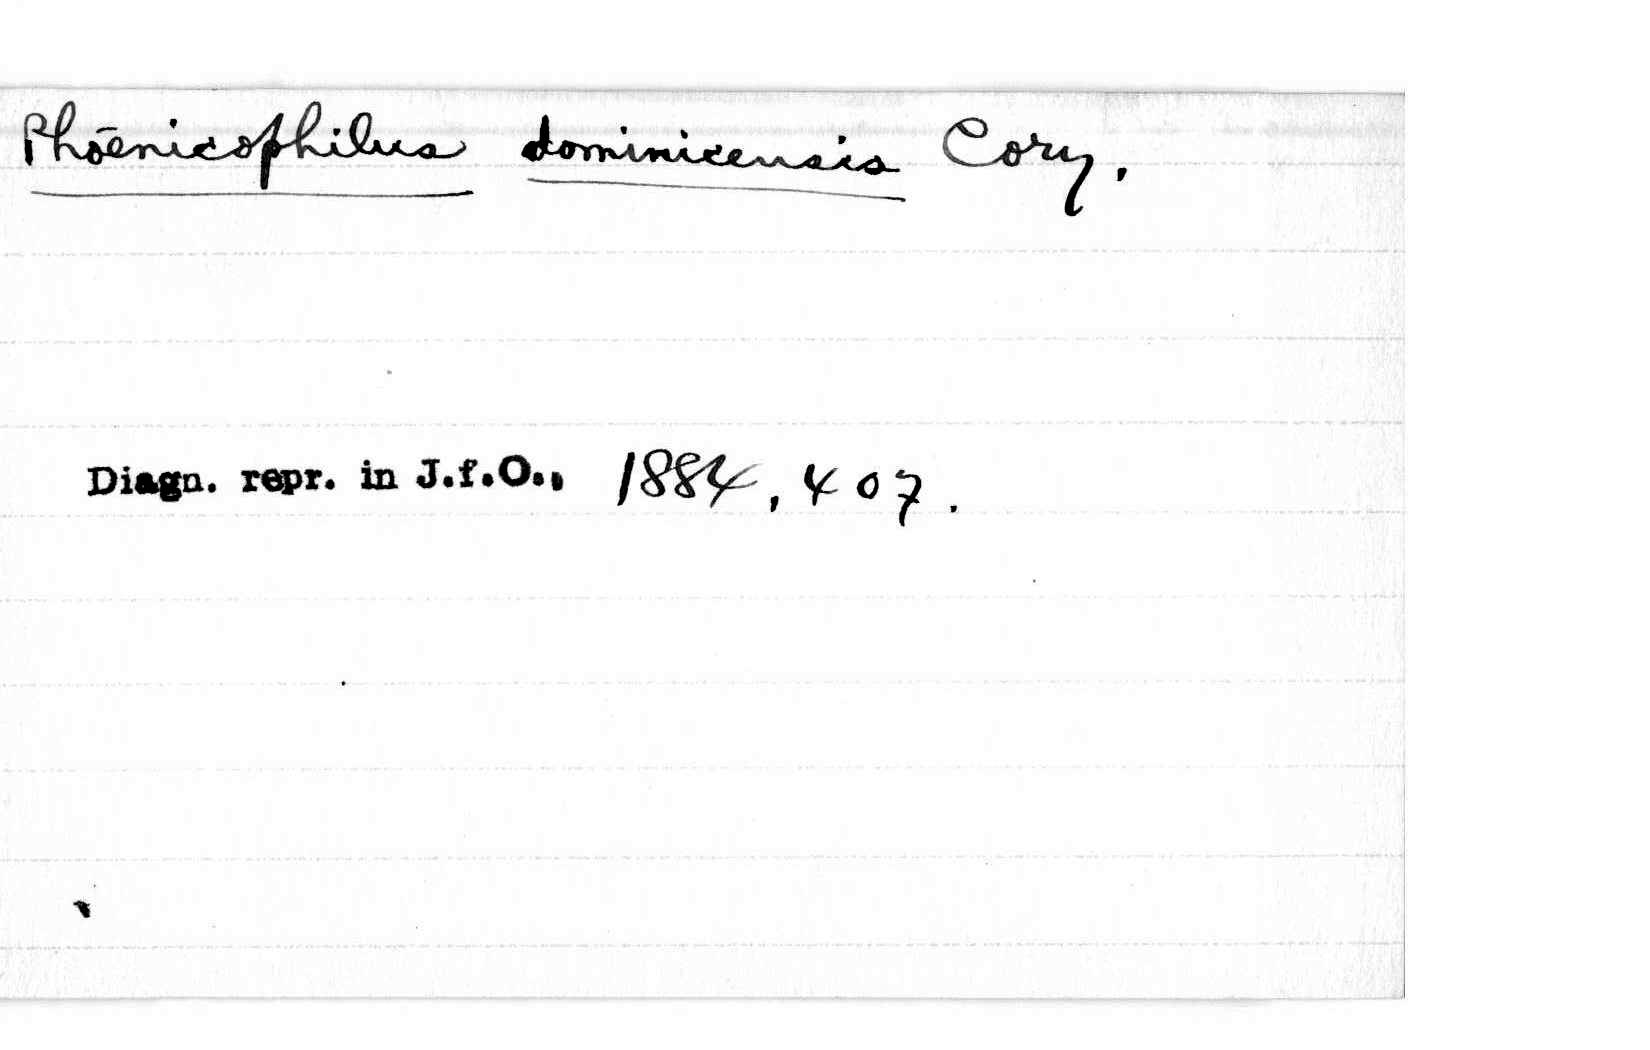 Phoenicophilus dominicensis Cory.
Diagn. repr. in J.f.O., 1884, 407.